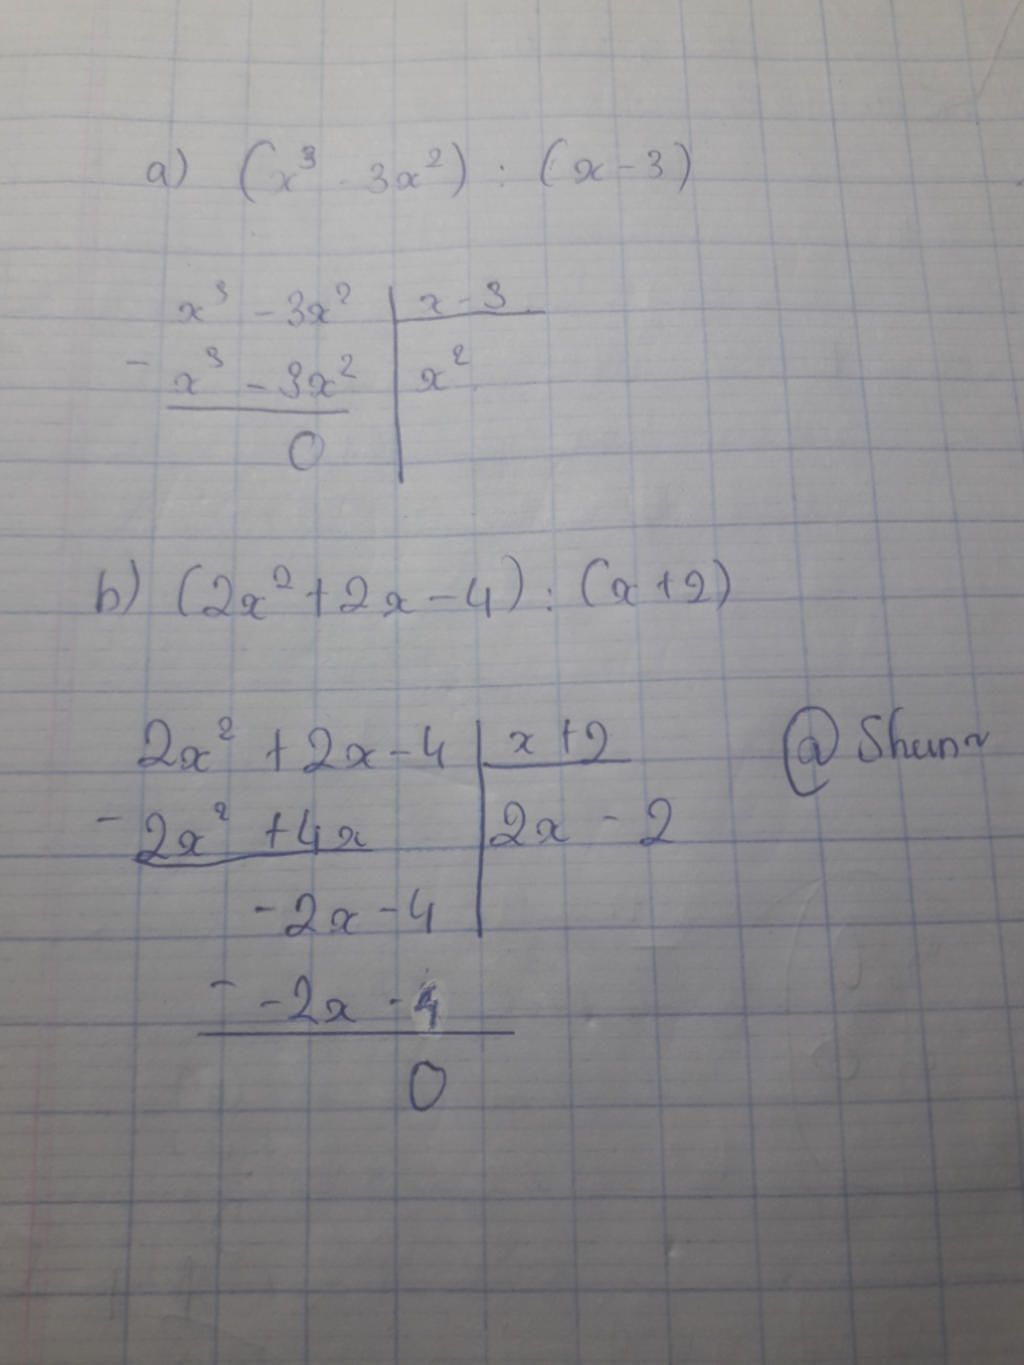 a) (x³ - 3x²) : (x - 3)
x³ - 3x² | x - 3
- x³ - 3x² | x²
0
b) (2x² + 2x - 4) : (x + 2)
2x² + 2x - 4 | x + 2
@ Shun~
- 2x² + 4x | 2x - 2
-2x - 4
- -2x - 4
0